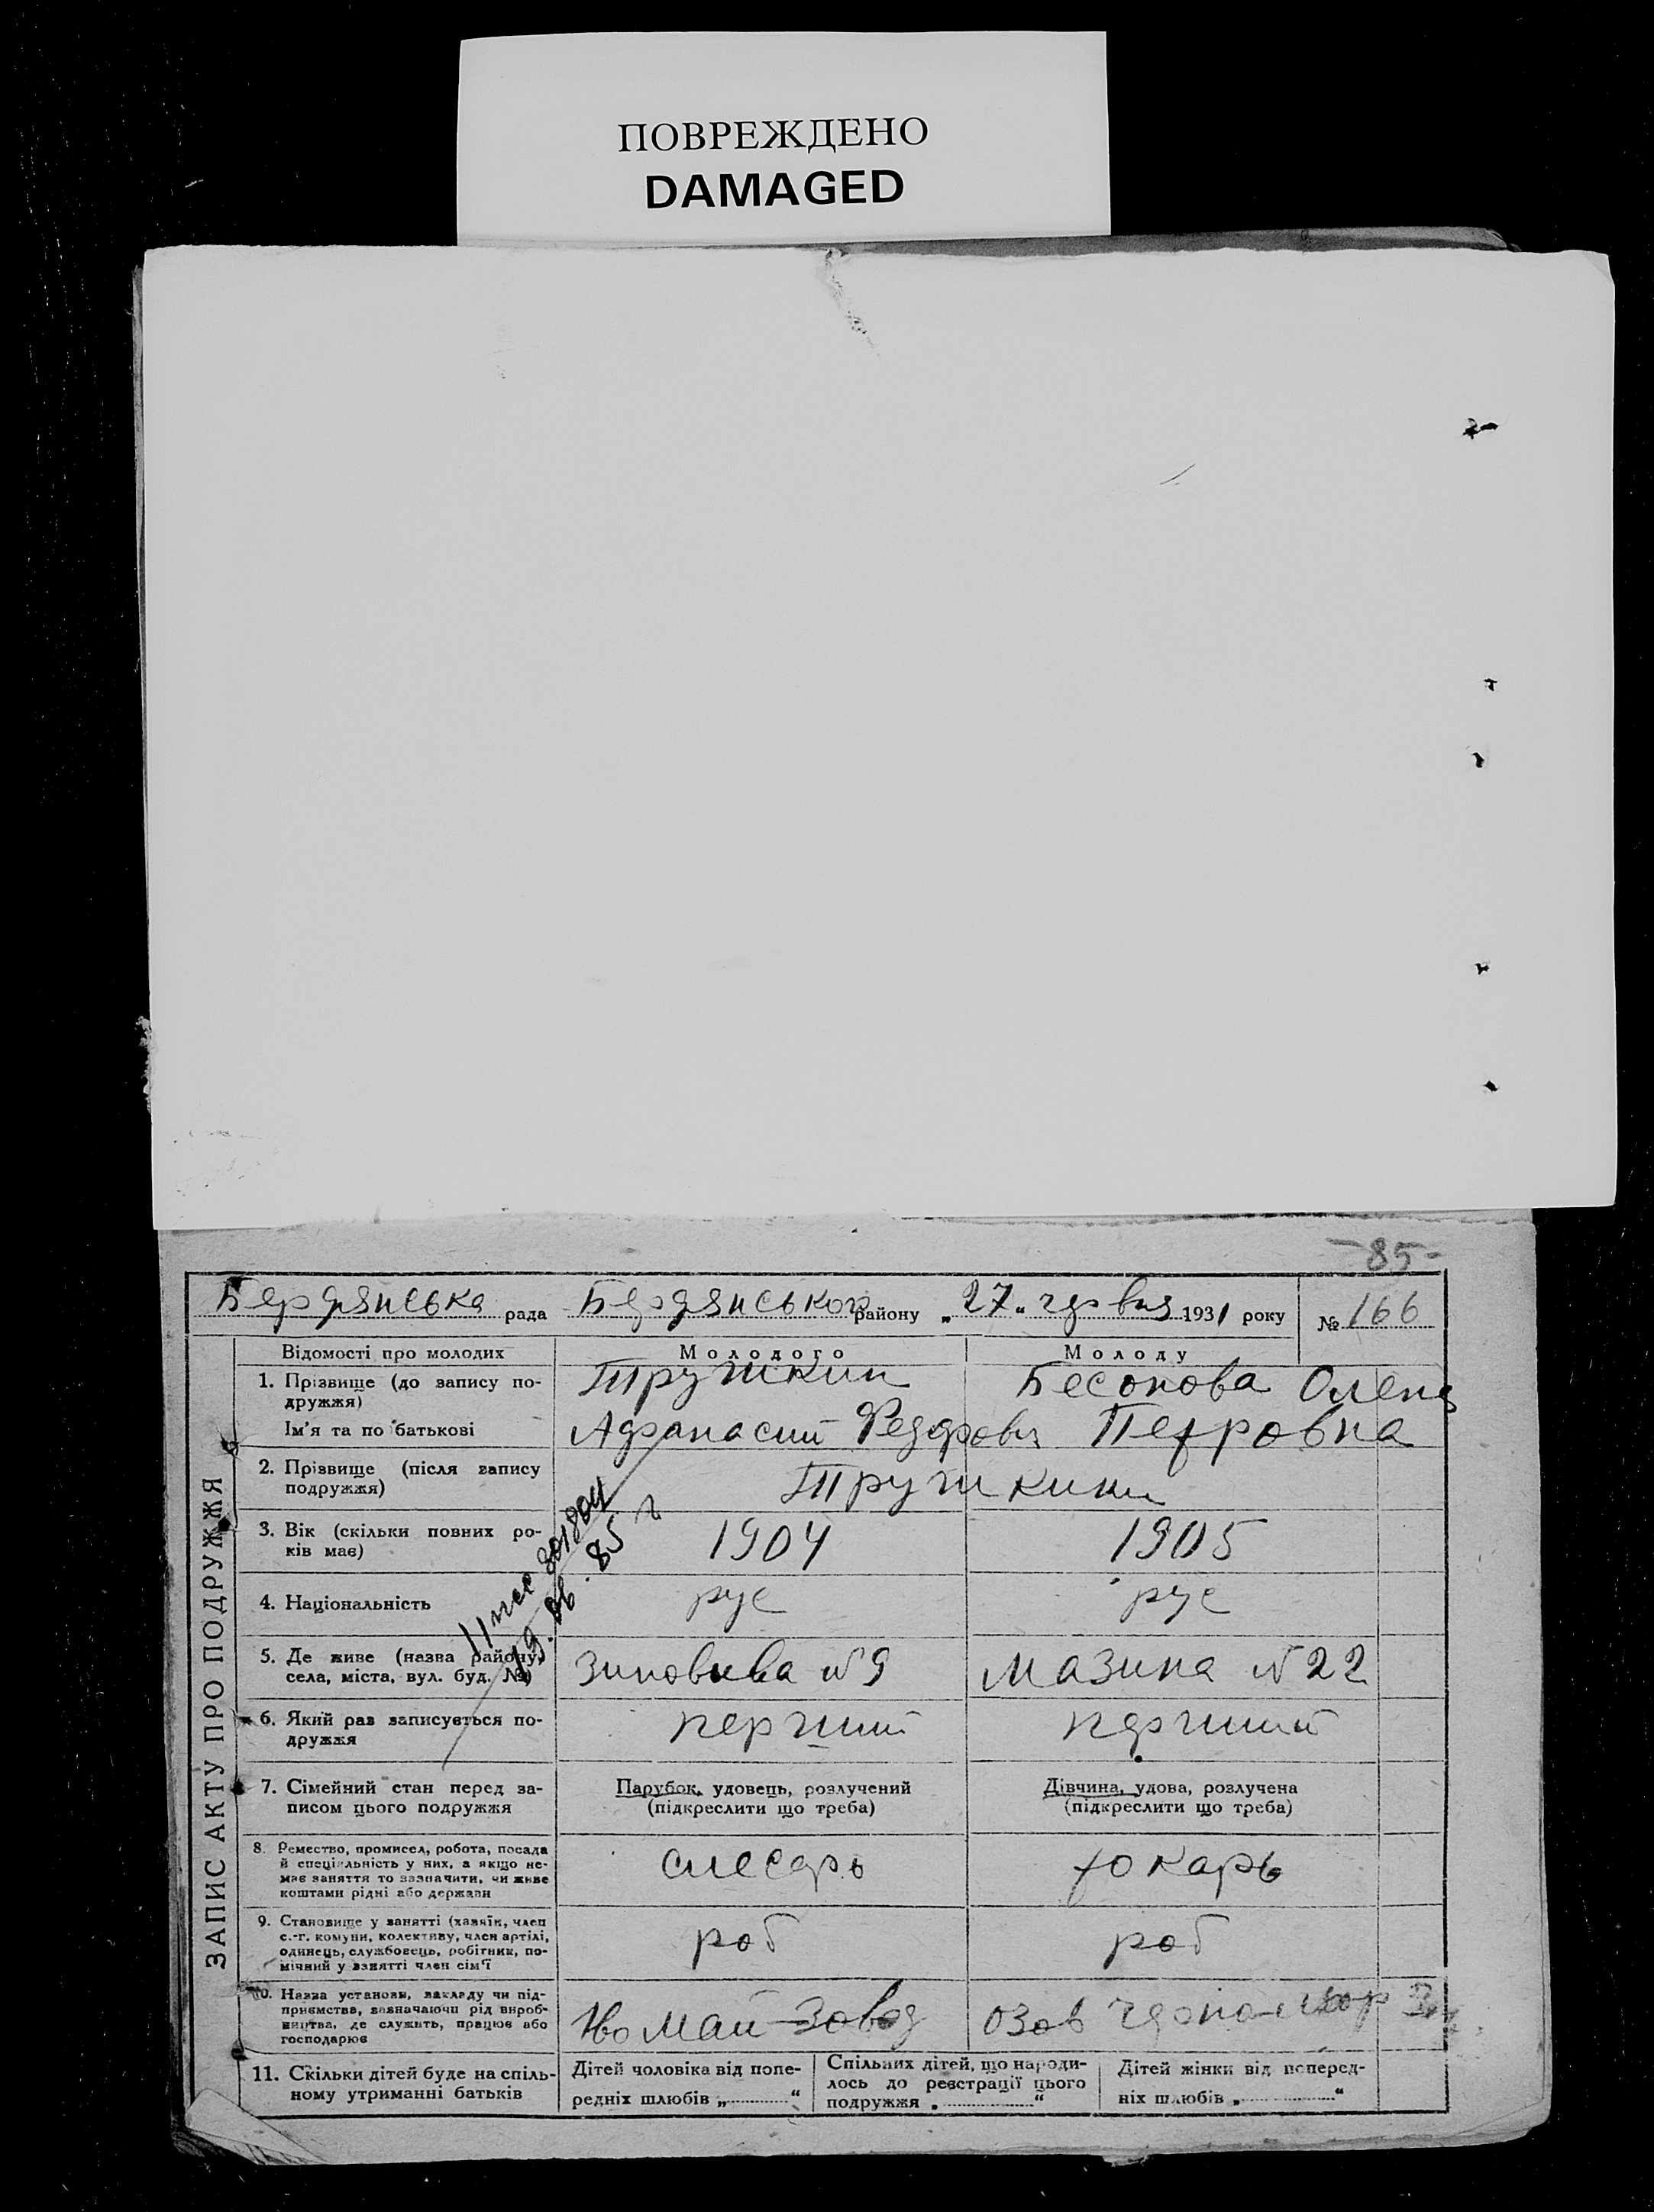 ПОВРЕЖДЕНО
DAMAGED
-85-
Бердянська рада Бердянського району „27" червня 1931 року № 166
ЗАПИС АКТУ ПРО ПОДРУЖЖЯ
Відомості про молодих Молодого Молоду
1. Прізвище (до запису по-
дружжя)
Ім'я та по батькові
Трушкин
Афанасий Федорович
Бесонова Олена
Петровна
2. Прізвище (після запису
подружжя)
Трушкини
3. Вік (скільки повних ро-
ків має)
1904
1905
4. Національність
рус
рус
19.06.85 г
5. Де живе (назва району,
села, міста, вул. буд. №)
Зиновьева №9
Мазина №22
6. Який раз записується по-
дружжя
перший
перший
7. Сімейний стан перед за-
писом цього подружжя
Парубок, удовець, розлучений
(підкреслити що треба)
Дівчина, удова, розлучена
(підкреслити що треба)
8. Ремество, промисел, робота, посада
й спеціяльність у них, а якщо не-
має заняття то зазначити, чи живе
коштами рідні або держави
слесарь
токарь
9. Становище у занятті (хазяїн, член
с.-г. комуни, колективу, член артілі,
одинець, службовець, робітник, по-
мічний у занятті член сім'ї
роб
роб
10. Назва установи, закладу чи під-
приємства, зазначаючи рід вироб-
ництва, де служить, працює або
господарює
май завод
Озов
11. Скільки дітей буде на спіль-
ному утриманні батьків
Дітей чоловіка від попе-
редніх шлюбів „ “
Спільних дітей, що народи-
лось до реєстрації цього
подружжя „ “
Дітей жінки від поперед-
ніх шлюбів „ “